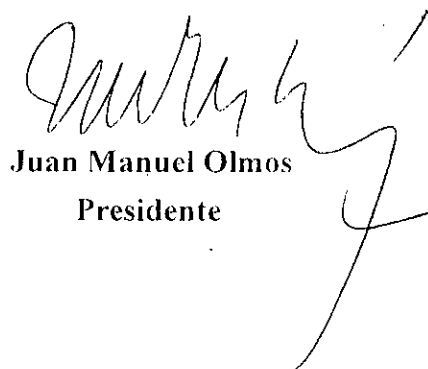 Juan Manuel Olmos
Presidente